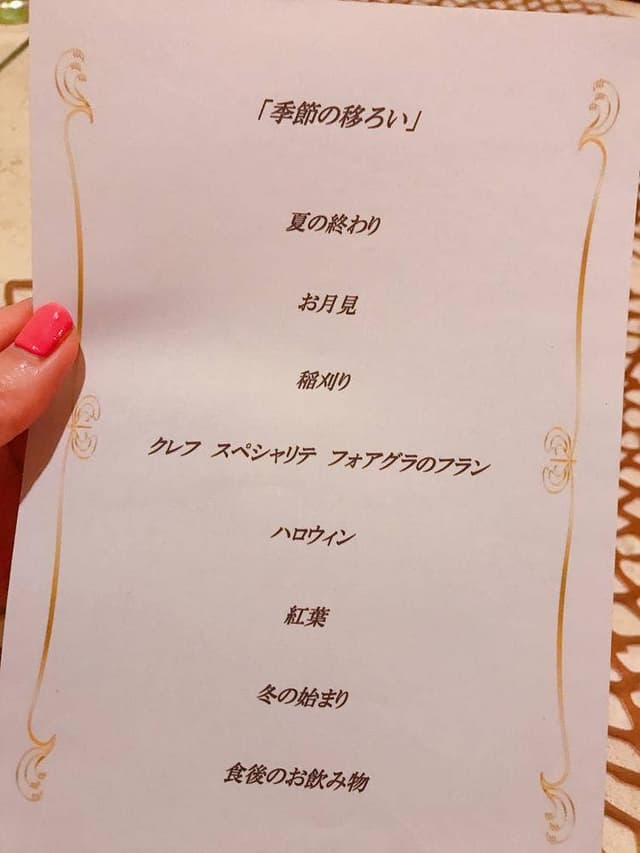 「季節の移ろい」
夏の終わり
お月見
稲刈り
クレフ スペシャリテ フォアグラのフラン
ハロウィン
紅葉
冬の始まり
食後のお飲み物